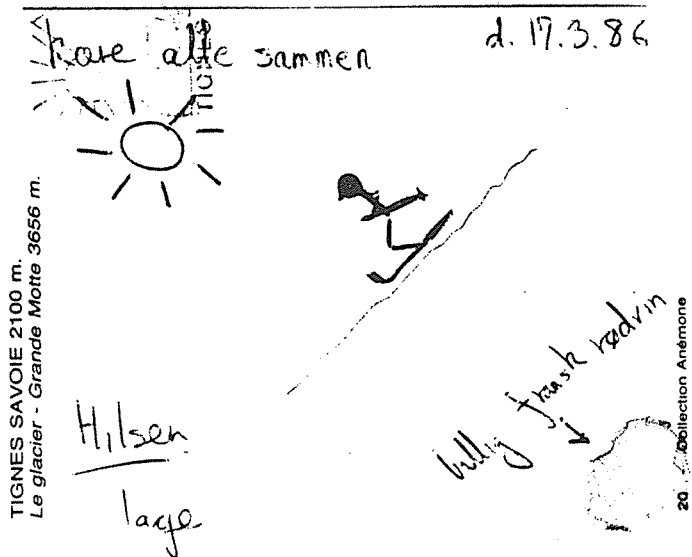 Kære alle sammen
d. 17.3.86
TIGNES
TIGNES SAVOIE 2100 m.
Le glacier - Grande Motte 3656 m.
billig fransk rødvin
Hilsen
20 - Collection Anémone